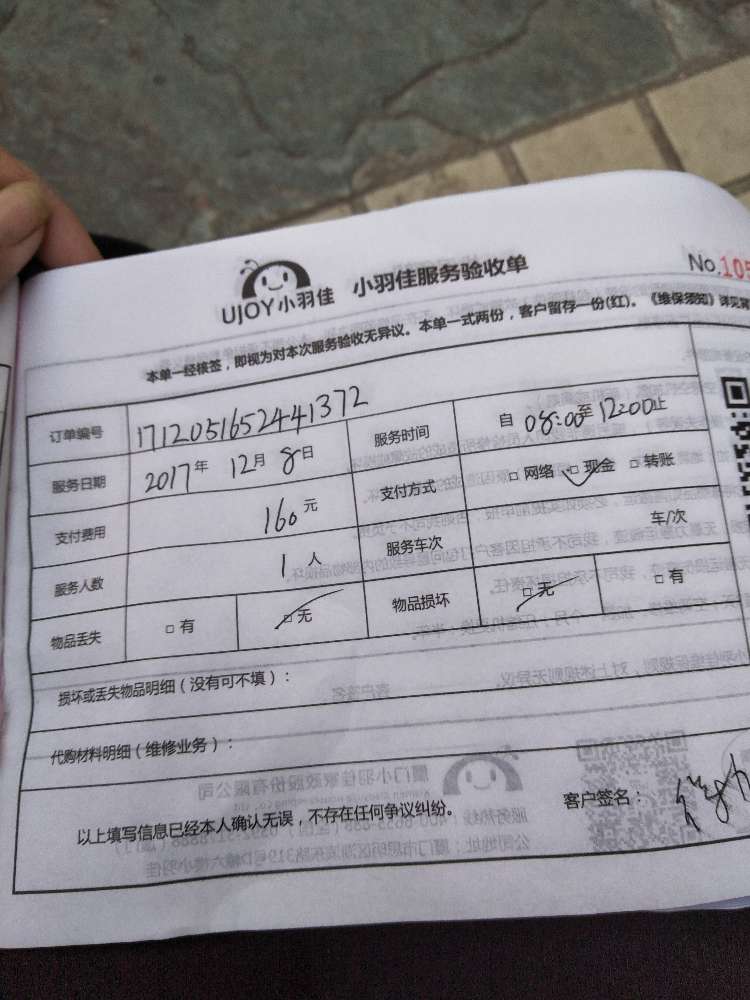 UJOY小羽佳 小羽佳服务验收单 No.105
本单一经核签，即视为对本次服务验收无异议。本单一式两份，客户留存一份(红)。《维保须知》详见背
订单编号 1712051652441372 服务时间 自 08:00至 12:00止
服务日期 2017年 12月 8日 支付方式 □ 网络 □ 现金 □ 转账
支付费用 160 元 服务车次 车/次
服务人数 1 人 物品损坏 □ 无 □ 有
物品丢失 □ 有 □ 无
损坏或丢失物品明细（没有可不填）：
代购材料明细（维修业务）：
以上填写信息已经本人确认无误，不存在任何争议纠纷。 客户签名：